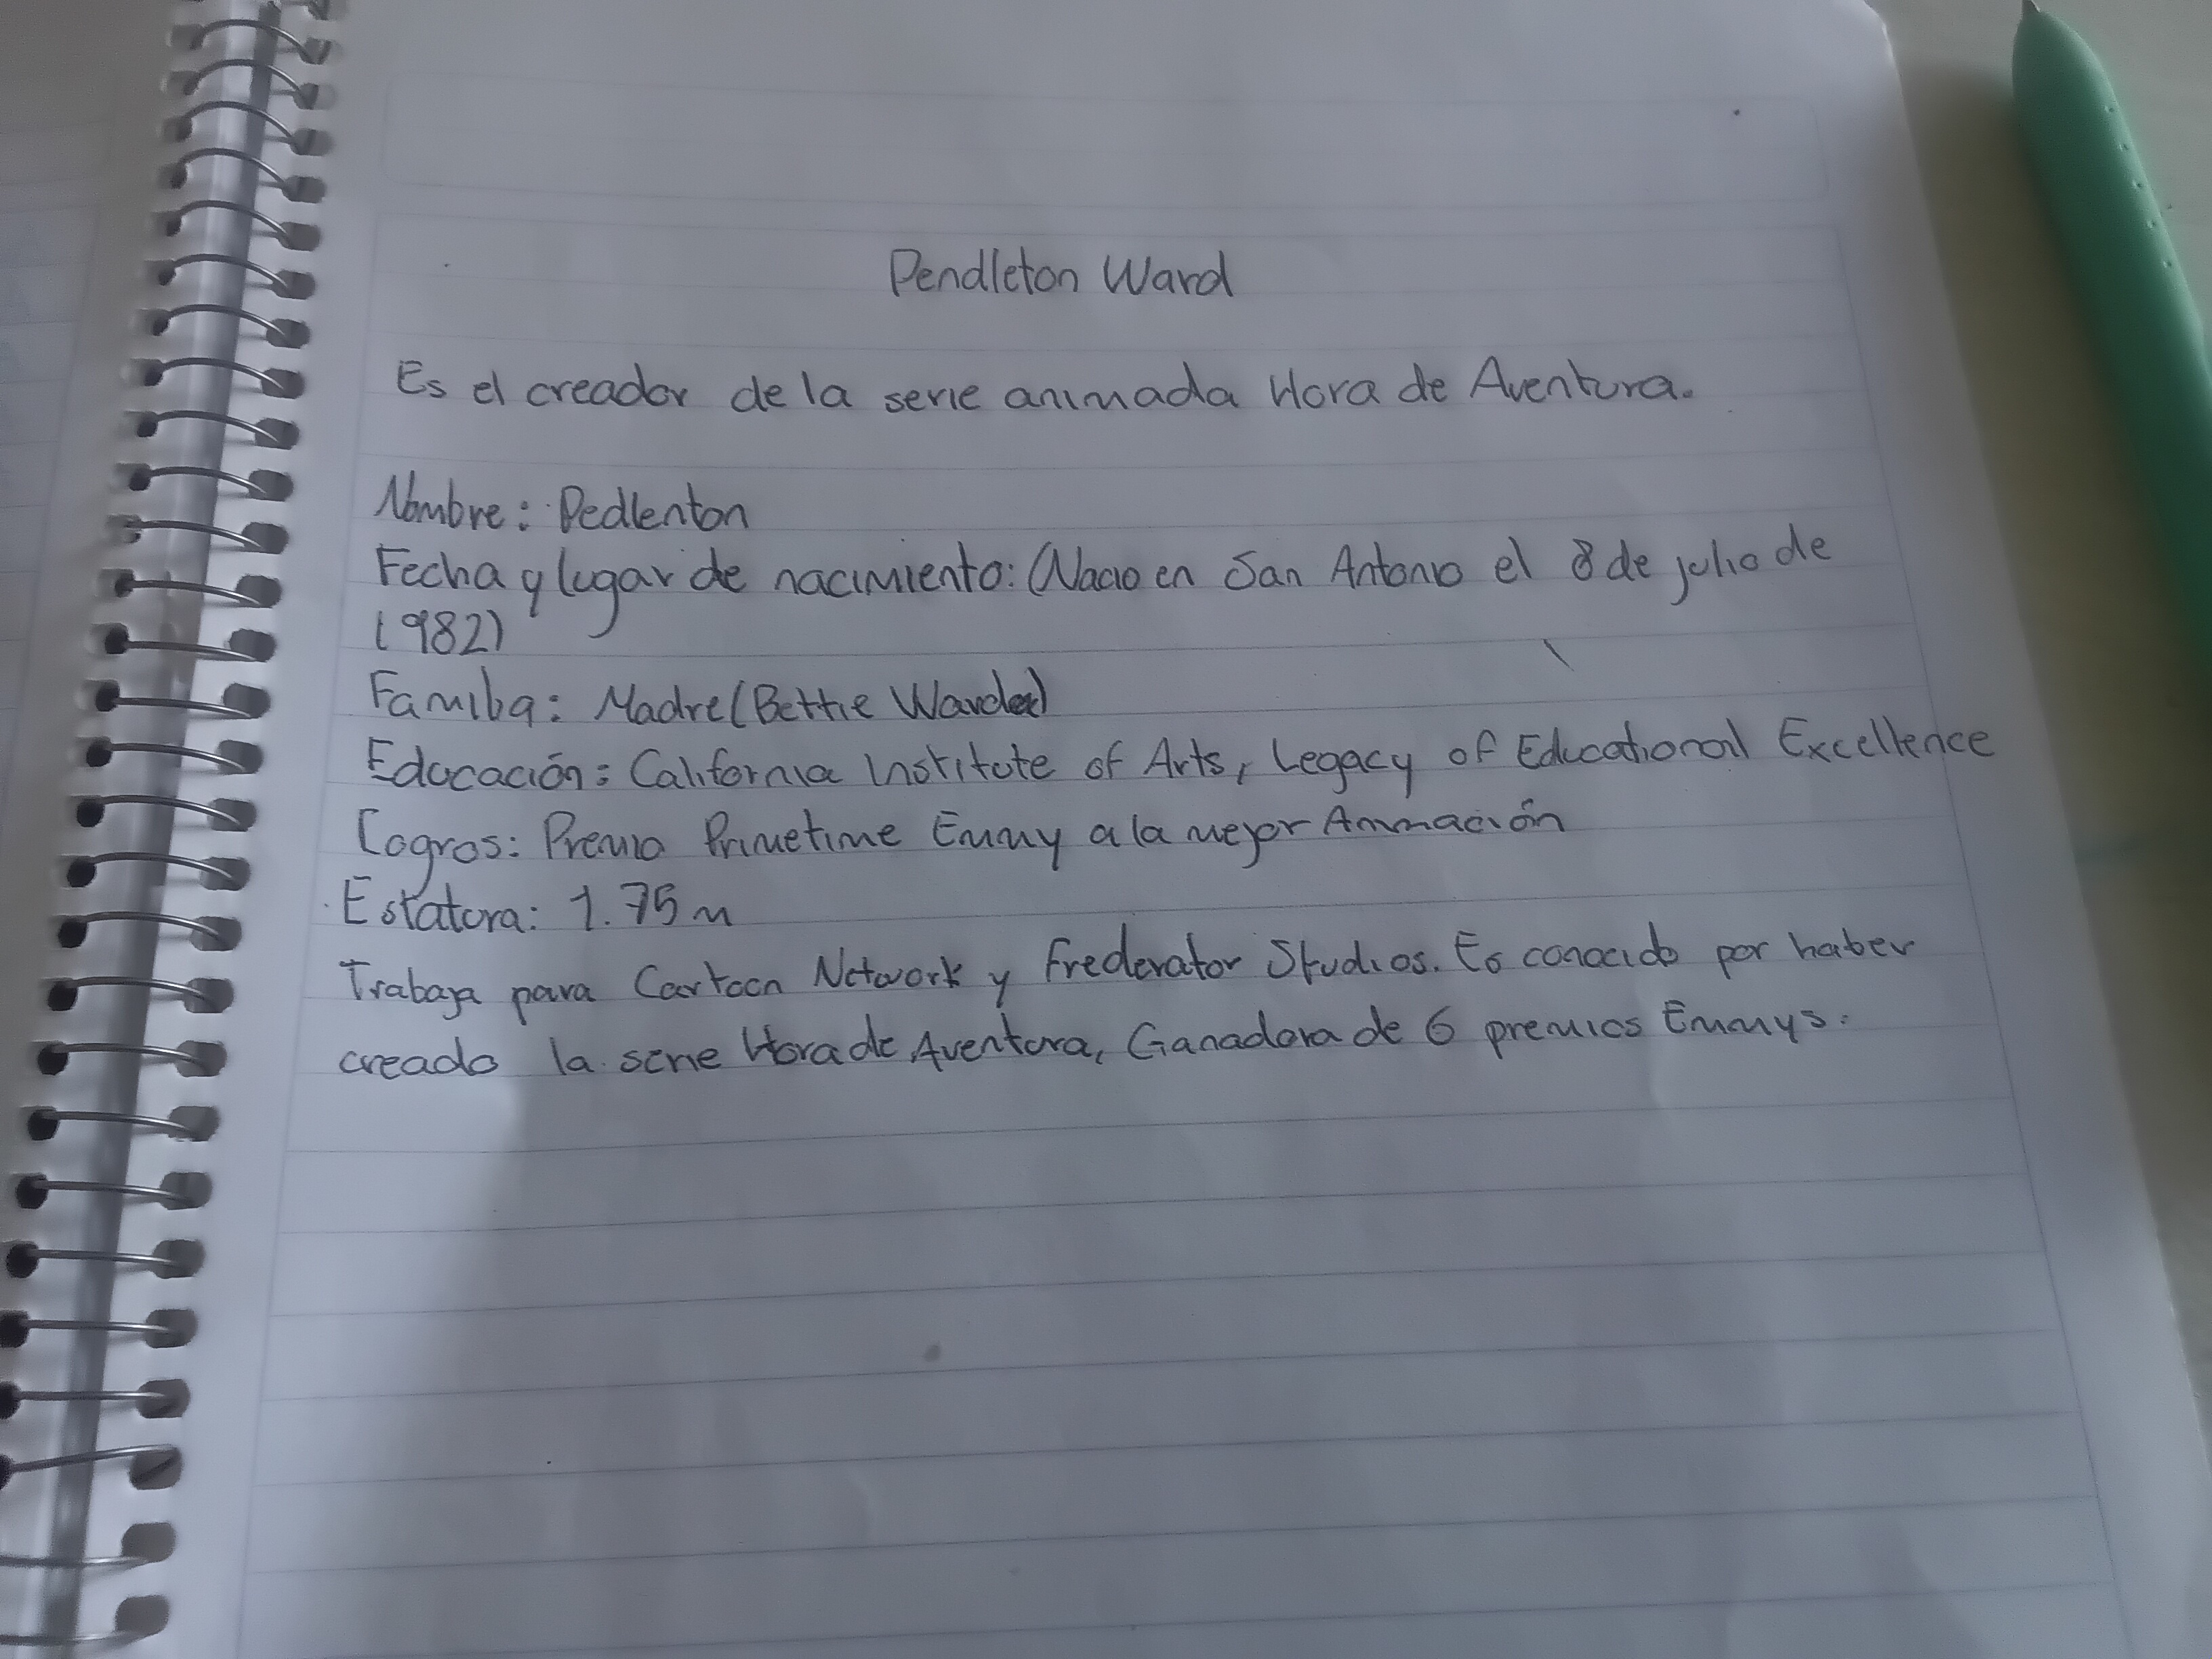 Pendleton Ward
Es el creador de la serie animada Hora de Aventura.
Nombre: Pedlenton
Fecha y lugar de nacimiento: (Nacio en San Antonio el 8 de julio de
1982)
Familia: Madre (Bettie Ward)
Educación: California Institute of Arts, Legacy of Educational Excellence
Logros: Premio Primetime Emmy a la mejor Animación
Estatura: 1.75 m
Trabaja para Cartoon Network y Frederator Studios. Es conocido por haber
creado la serie Hora de Aventura, Ganadora de 6 premios Emmys.